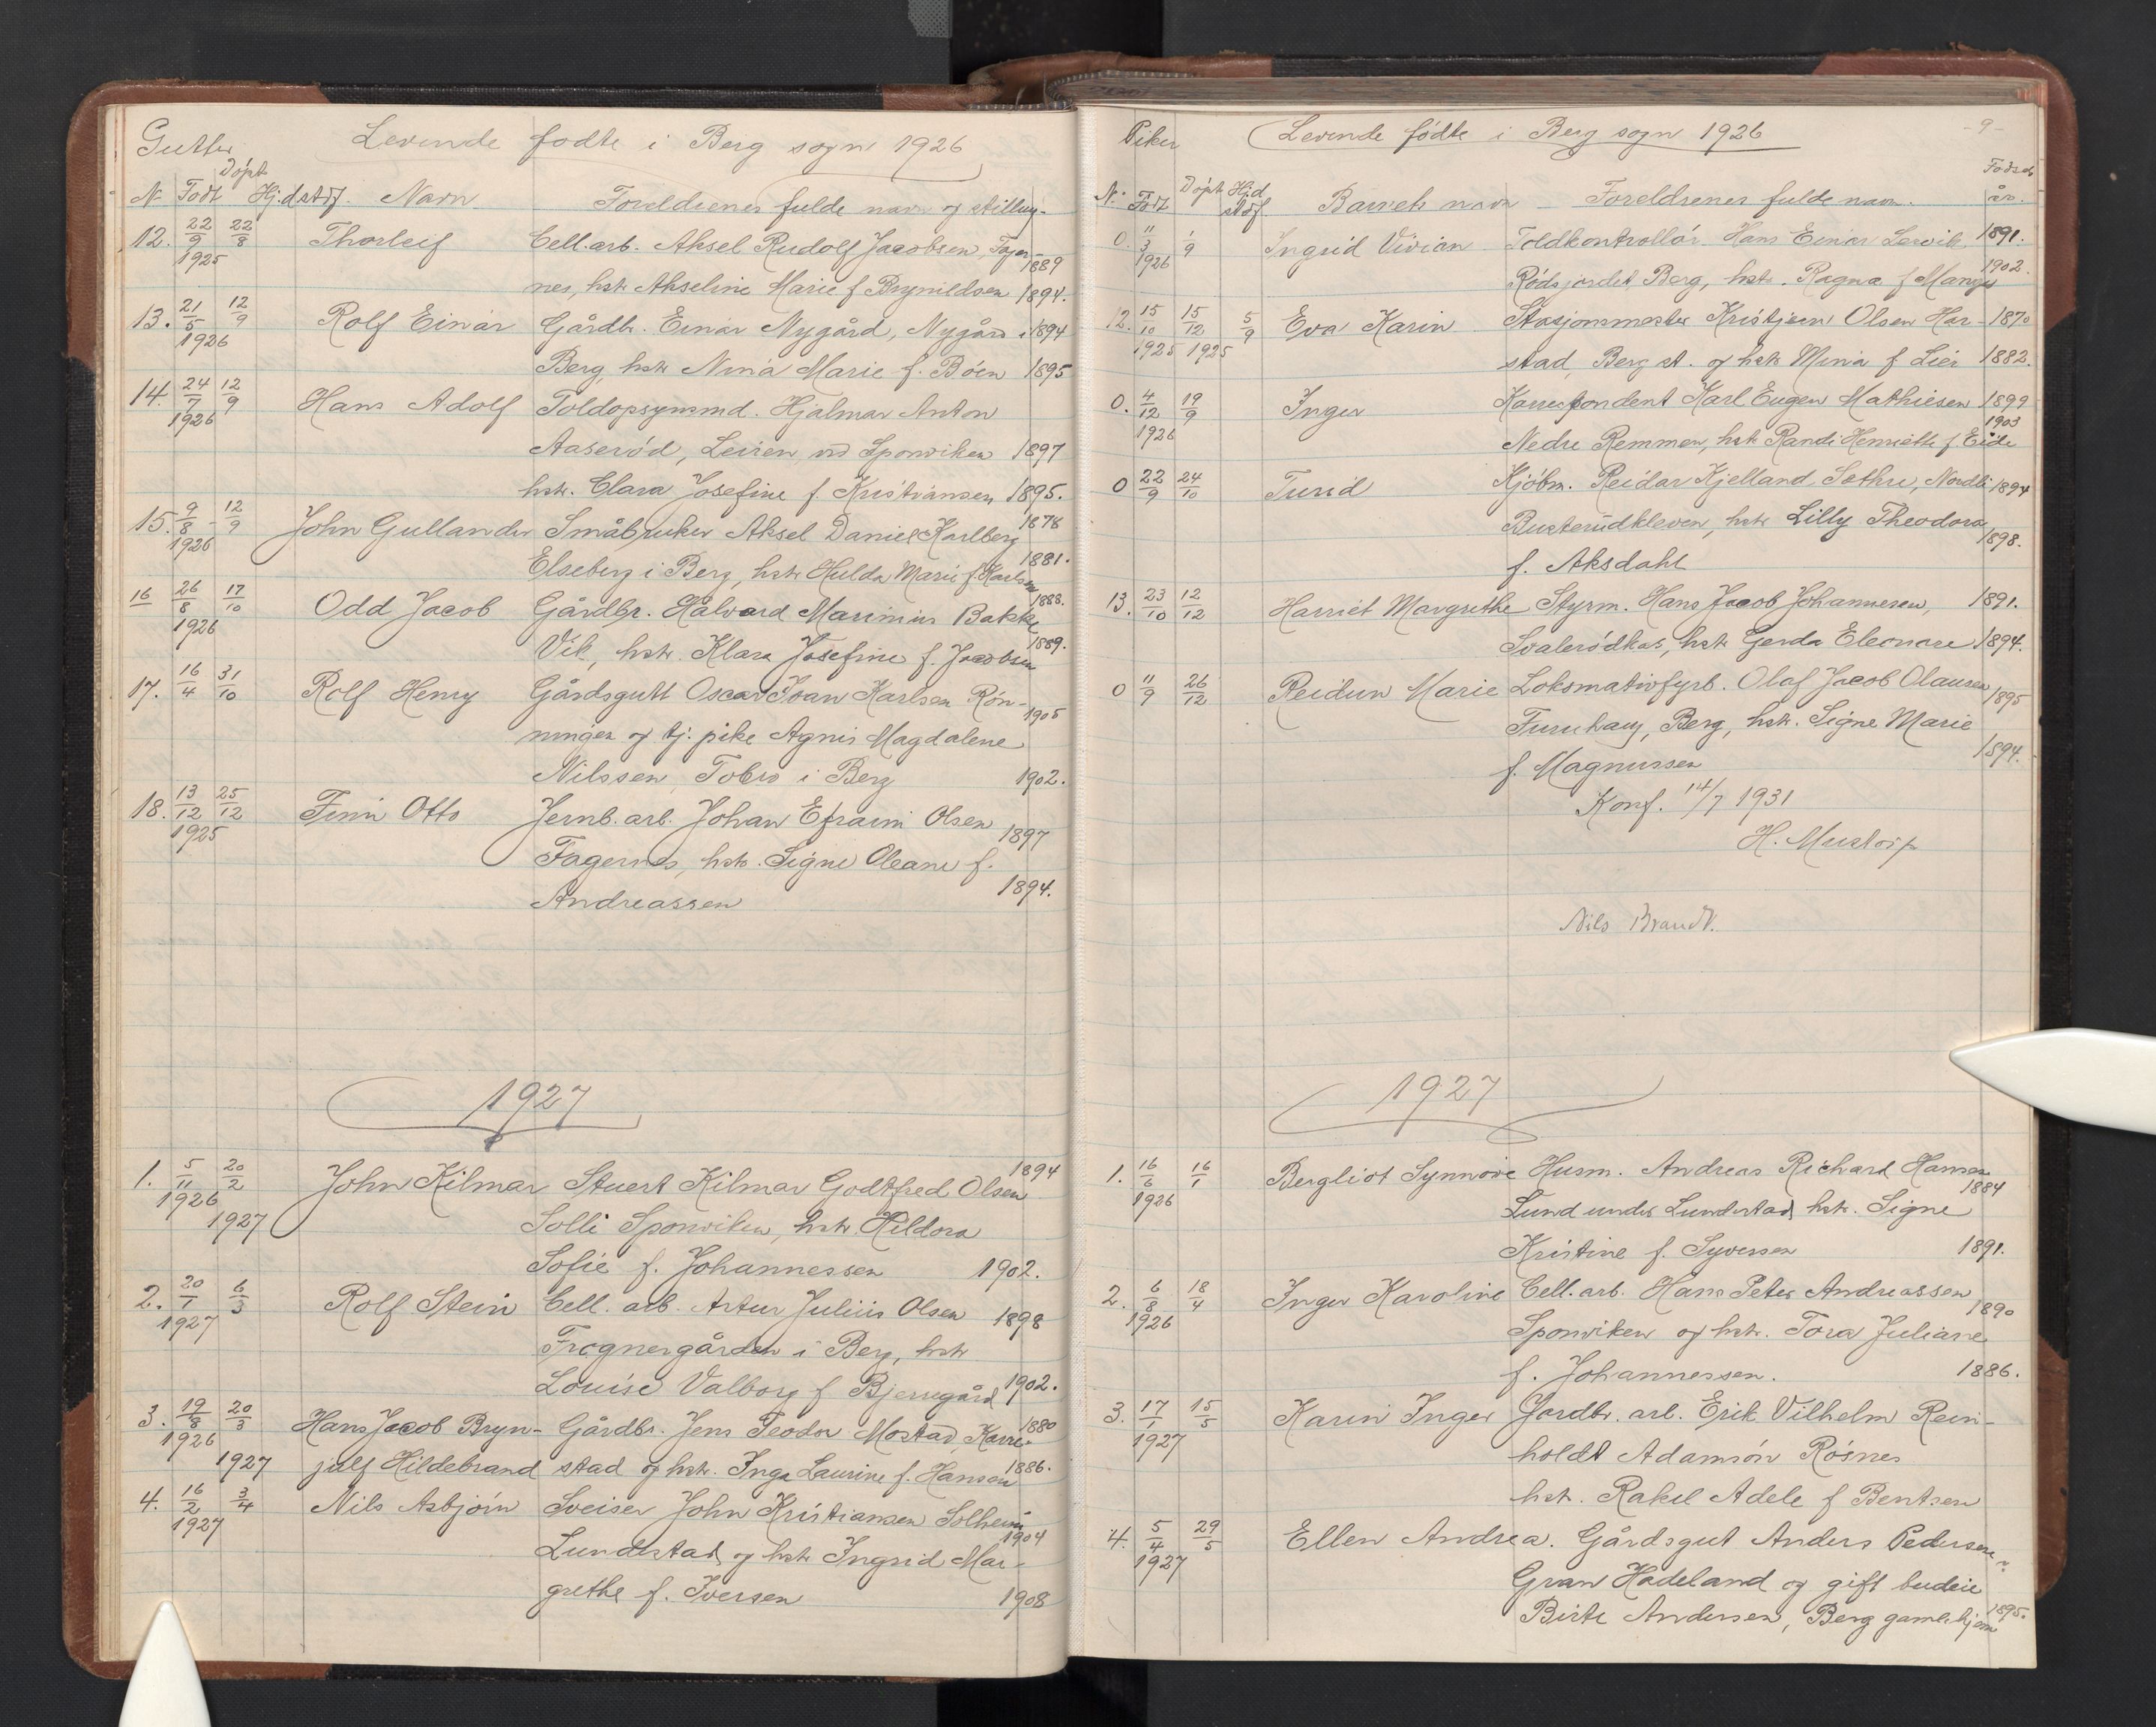 Gutter
Levende fødte i Berg sogn 1926
N. Født Døpt Hj.dstdf. Navn Foreldrenes fulde navn og stilling.
12. 22/9 1925 22/8 Thorleif Cell.arb. Aksel Rudolf Jacobsen, Fager- 1889
nes, hstr. Akseline Marie f. Brynildsen 1894.
13. 21/5 1926 12/9 Rolf Einar Gårdbr. Einar Nygård, Nygård i 1894
Berg, hstr Nina Marie f. Böen 1895
14. 24/7 1926 12/9 Hans Adolf Toldopsynsmd. Hjalmar Anton
Aaserød, Leiren ved Sponviken 1897
hstr. Clara Josefine f. Kristiansen 1895.
15. 9/8 1926 12/9 John Gullander Småbruker Aksel Daniel Karlberg 1878
Elseberg i Berg, hstr Hulda Marie f. Karlsen 1881.
16 26/8 1926 17/10 Odd Jacob Gårdbr. Halvard Marinius Bakke 1888.
Vik, hstr. Klara Josefine f. Jacobsen 1889.
17. 16/4 31/10 Rolf Henry Gårdsgutt Oscar Ivan Karlsen Røn- 1905
ningen og tj. pike Agnes Magdalene
Nilssen, Tobro i Berg 1902.
18. 13/12 1925 25/12 Finn Otto Jernb. arb. Johan Efraim Olsen 1897
Fagernes, hstr. Signe Oleane f.
Andreassen 1894.
1927
1. 5/11 1926 20/2 1927 John Kilmar Stuert Kilmar Godtfred Olsen 1894
Solli Sponviken, hstr. Hildora
Sofie f. Johannessen 1902.
2. 20/1 1927 6/3 Rolf Stein Cell. arb. Artur Julius Olsen 1898
Frognergården i Berg, hstr
Louise Valborg f. Bjerregård 1902.
3. 19/8 1926 20/3 1927 Hans Jacob Bryn- Gårdbr. Jens Teodor Mostad, Karri- 1880
julf Hildebrand stad og hstr. Inga Laurine f. Hansen 1886.
4. 16/2 1927 3/4 Nils Asbjørn Sveiser John Kristiansen Solheim 1904
Lundestad og hstr Ingrid Mar-
grethe f. Iversen 1908
Piker
Levende fødte i Berg sogn 1926
-9-
N. Født Døpt Hjd stdf. Barnets navn Foreldrenes fulde navn. Fødsels år.
0. 11/3 1926 1/9 Ingrid Vivian Toldkontrollør Hans Einar Lervik 1891.
Rødsjordet Berg, hstr. Ragna f. Mangs 1902.
12. 15/10 1925 15/12 1925 5/9 Eva Karin Stasjonsmester Kristjern Olsen Har- 1870
stad, Berg st. og hstr Mina f. Lier 1882.
0. 4/12 1926 19/9 Inger Korrespondent Karl Eugen Mathiesen 1899
Nedre Remmen, hstr Randi Henriette f. Eide 1903
0 22/9 24/10 Turid Kjøbm. Reidar Kjelland Sethre, Nordli 1894
Busterudkleven, hstr Lilly Theodora
f. Aksdahl 1898.
13. 23/10 12/12 Harriet Margrethe Styrm. Hans Jacob Johannesen, 1891.
Svalerødkas, hstr Gerda Eleonore 1894.
0 11/9 26/12 Reidun Marie Lokomotivfyrb. Olaf Jacob Olausen 1895
Furuhaug, Berg, hstr. Signe Marie
f. Magnussen 1894.
Konf. 14/7 1931
H. Mustorp
Nils Brandt.
1927
1. 16/6 1926 16/1 Bergliot Synnøve Husm. Andreas Richard Hansen 1884
Lund under Lundestad hstr. Signe
Kristine f. Syversen 1891.
2. 6/8 1926 18/4 Inger Karoline Cell. arb. Hans Peter Andreassen 1890
Sponviken og hstr. Tora Juliane
f. Johannessen. 1886.
3. 17/1 1927 15/5 Karin Inger Jordbr. arb. Erik Vilhelm Rein-
holdt Adamsön Røsnes
hstr. Rakel Adele f Bentsen
4. 5/4 1927 29/5 Ellen Andrea. Gårdsgut Anders Pedersen
Gran Hadeland og gift budeie
Birte Andersen, Berg gamlehjem 1895.